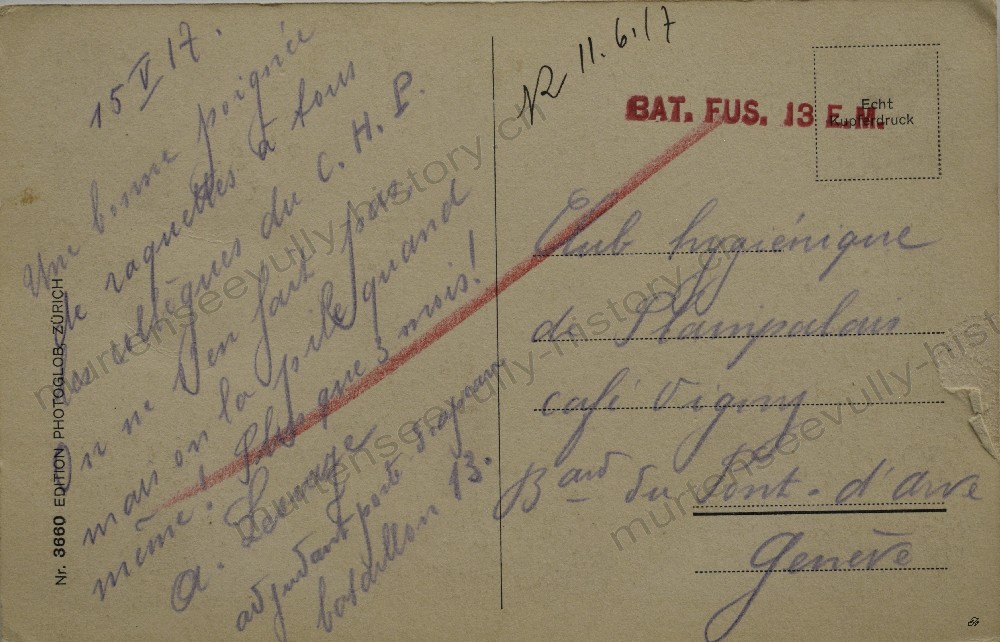 15 V 17.
Une bonne poignée
de raquettes à tous
les collègues du C. H. P.
On ne s'en fait pas
mais on la pile quand
même! Plus que 3 mois!
A.
adjudant porte drapeau
bataillon 13.
Nr. 3660 EDITION PHOTOGLOB-ZÜRICH
11.6.17
BAT. FUS. 13 E.M.
Echt
Kupferdruck
Club hygiénique
de Plainpalais
café Vigny
Bard du Pont-d'Arve
Genève
murtenseevully-history.ch
murtenseevully-history.ch
murtenseevully-history.ch